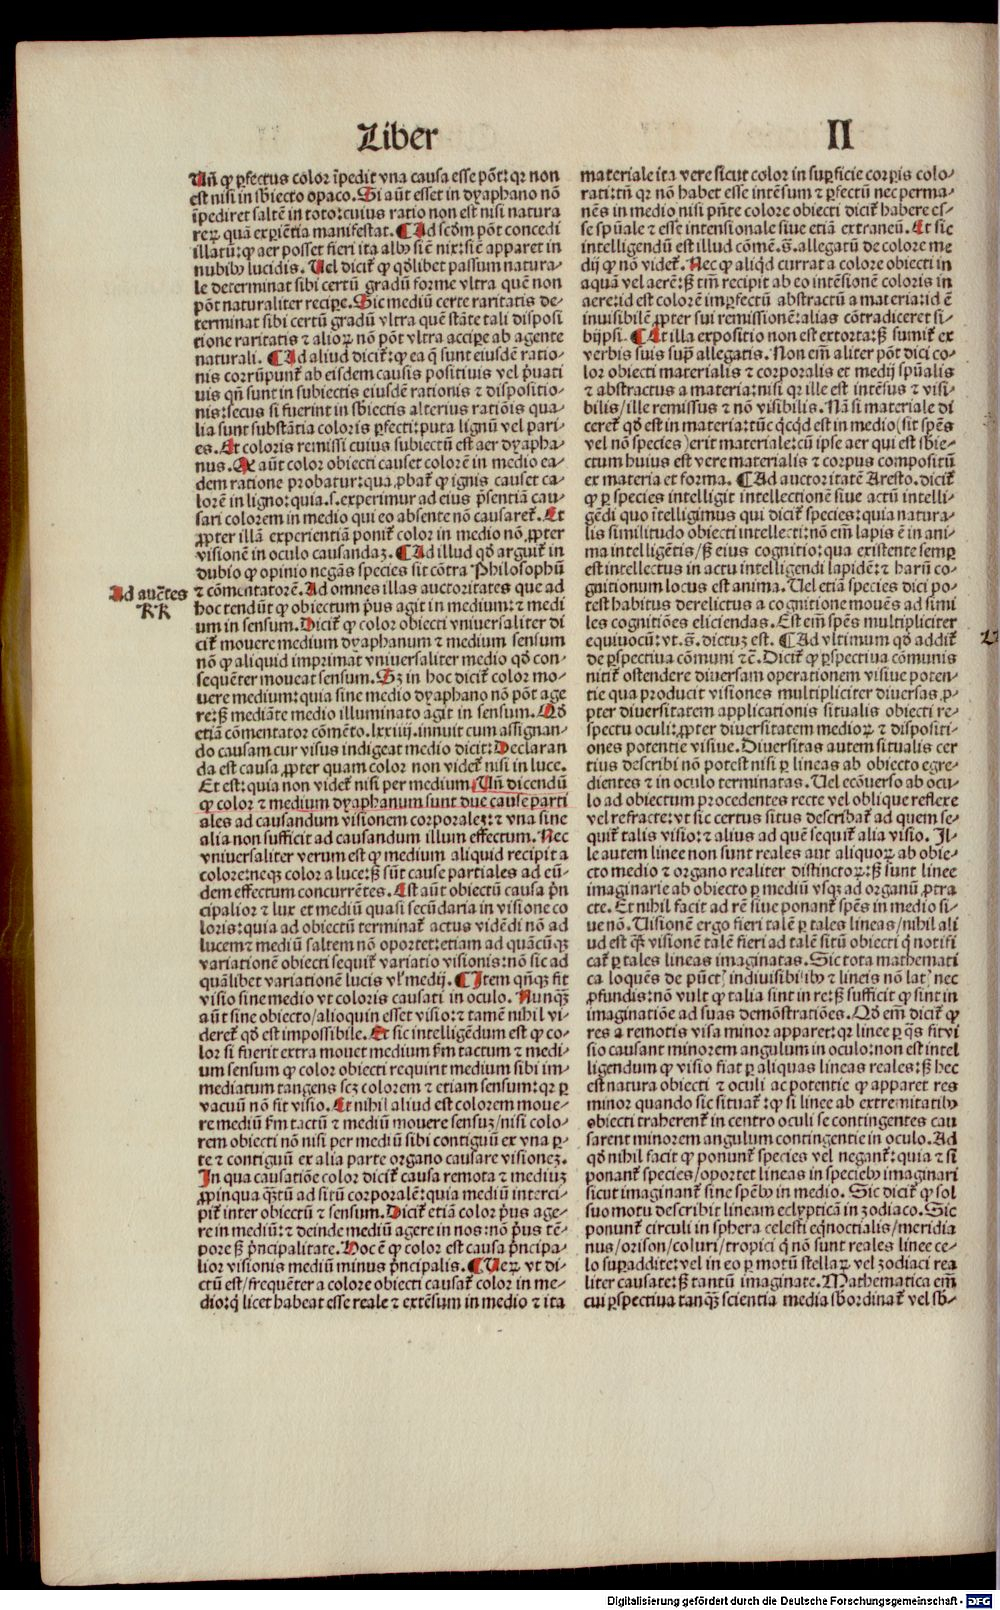 Liber
II
Vñ ꝙ ꝑfectus color ĩpedit vna causa esse põt: qꝛ non
est nisi in sbiecto opaco. Si aũt esset in dyaphano nõ
ĩpediret saltẽ in toto: cuius ratio non est nisi natura
reꝝ quã exꝑiẽtia manifestat. ¶ Ad scõm põt concedi
illatũ: ꝙ aer posset fieri ita albꝰ siẽ nix: siẽ apparet in
nubibꝰ lucidis. Vel dicit̃ ꝙ qdlibet passum natura-
le determinat sibi certũ gradũ forme vltra quẽ non
põt naturaliter recipe. Sic mediũ certe raritatis de-
terminat sibi certũ gradũ vltra quẽ stãte tali disposi
tione raritatis ⁊ alioꝝ nõ põt vltra accipe ab agente
naturali. ¶ Ad aliud dicit̃: ꝙ ea q̃ sunt eiusdẽ ratio-
nis corrũpunt̃ ab eisdem causis positiuis vel p̃uati
uis qñ sunt in subiectis eiusdẽ rationis ⁊ dispositio-
nis: secus si fuerint in sbiectis alterius ratiõis qua-
lia sunt substãtia coloris ꝑfecti: puta lignũ vel pari-
es. Et coloris remissi cuius subiectũ est aer dyapha-
nus. Ꝙ aũt color obiecti causet colorẽ in medio ea-
dem ratione probatur: qua ꝓbat̃ ꝙ ignis causet ca-
lorẽ in ligno: quia .s. experimur ad eius p̃sentiã cau-
sari colorem in medio qui eo absente nõ causaret̃. Et
ꝓpter illã experientiã ponit̃ color in medio nõ ꝓpter
visionẽ in oculo causandaꝫ. ¶ Ad illud qd arguit̃ in
dubio ꝙ opinio negãs species sit cõtra Philosophũ
Ad auctẽs
KK
⁊ cõmentatorẽ. Ad omnes illas auctoritates que ad
hoc tendũt ꝙ obiectum p̃us agit in medium: ⁊ medi
um in sensum. Dicit̃ ꝙ color obiecti vniuersaliter di
cit̃ mouere medium dyaphanum ⁊ medium sensum
nõ ꝙ aliquid imprimat vniuersaliter medio qd con-
sequẽter moueat sensum. Sꝫ in hoc dicit̃ color mo-
uere medium: quia sine medio dyaphano nõ põt age
re: sꝫ mediãte medio illuminato agit in sensum. Qd
etiã cõmentator cõmẽto. lxxiiij. innuit cum assignan-
do causam cur visus indigeat medio dicit: Declaran
da est causa ꝓpter quam color non videt̃ nisi in luce.
Et est: quia non videt̃ nisi per medium. Vñ dicendũ
ꝙ color ⁊ medium dyaphanum sunt due cause parti
ales ad causandum visionem corporaleꝫ: ⁊ vna sine
alia non sufficit ad causandum illum effectum. Nec
vniuersaliter verum est ꝙ medium aliquid recipit a
colore: neqꝫ color a luce: sꝫ sũt cause partiales ad eũ-
dem effectum concurrẽtes. Est aũt obiectũ causa p̃n
cipalior ⁊ lux et mediũ quasi secũdaria in visione co
loris: quia ad obiectũ terminat̃ actus vidẽdi nõ ad
lucem ⁊ mediũ saltem nõ oportet: etiam ad quãcũqꝫ
variationẽ obiecti sequit̃ variatio visionis: nõ sic ad
quãlibet variationẽ lucis vl̃ medij. ¶ Item qñqꝫ fit
visio sine medio vt coloris causati in oculo. Nunqꝫ
aũt sine obiecto / alioquin esset visio: ⁊ tamẽ nihil vi-
deret̃ qd est impossibile. Et sic intelligẽdum est ꝙ co-
lor si fuerit extra mouet medium fm tactum ⁊ medi-
um sensum ꝙ color obiecti requirit medium sibi im-
mediatum tangens scꝫ colorem ⁊ etiam sensum: qꝛ ꝑ
vacuũ nõ fit visio. Et nihil aliud est colorem moue-
re mediũ fm tactũ ⁊ mediũ mouere sensuꝫ / nisi colo-
rem obiecti nõ nisi per mediũ sibi contiguũ ex vna ꝑ-
te ⁊ contiguũ ex alia parte organo causare visioneꝫ.
In qua causatiõe color dicit̃ causa remota ⁊ mediuꝫ
ꝓpinqua qꝫtũ ad sitũ corporalẽ: quia mediũ interci-
pit̃ inter obiectũ ⁊ sensum. Dicit̃ etiã color p̃us age-
re in mediũ: ⁊ deinde mediũ agere in nos: nõ p̃us tẽ-
pore sꝫ p̃ncipalitate. Hoc ẽ ꝙ color est causa p̃ncipa-
lior visionis mediũ minus p̃ncipalis. ¶ Ueꝝ vt di-
ctũ est / frequẽter a colore obiecti causat̃ color in me-
dio: q̃ licet habeat esse reale ⁊ extẽsum in medio ⁊ ita
materiale ita vere sicut color in suꝑficie corꝑis colo-
rati: tñ qꝛ nõ habet esse intẽsum ⁊ ꝑfectũ nec perma-
nẽs in medio nisi p̃nte colore obiecti dicit̃ habere es-
se spũale ⁊ esse intensionale siue etiã extraneũ. Et sic
intelligendũ est illud cõmẽ. s̃. allegatũ de colore me
dij ꝙ nõ videt̃. Nec ꝙ aliqd currat a colore obiecti in
aquã vel aerẽ: sꝫ tm̃ recipit ab eo intẽsionẽ coloris in
aere: id est colorẽ imꝑfectũ abstractũ a materia: id ẽ
inuisibilẽ ꝓpter sui remissionẽ: alias cõtradiceret si-
bijpsi. ¶ Et illa expositio non est extorta: sꝫ sumit̃ ex
verbis suis suꝑ allegatis. Non em̃ aliter põt dici co-
lor obiecti materialis ⁊ corporalis et medij spũalis
⁊ abstractus a materia: nisi qꝛ ille est intẽsus ⁊ visi-
bilis / ille remissus ⁊ nõ visibilis. Nã si materiale di
ceret̃ qd est in materia: tũc qcqd est in medio (sit spẽs
vel nõ species) erit materiale: cũ ipse aer qui est sbie-
ctum huius est vere materialis ⁊ corpus compositũ
ex materia et forma. ¶ Ad auctoritatẽ Aresto. dicit̃
ꝙ ꝑ species intelligit intellectionẽ siue actũ intelli-
gẽdi quo ĩtelligimus qui dicit̃ species: quia natura-
lis similitudo obiecti intellecti: nõ em̃ lapis ẽ in ani-
ma intelligẽtis / sꝫ eius cognitio: qua existente semꝑ
est intellectus in actu intelligendi lapidẽ: ⁊ harũ co-
gnitionum locus est anima. Uel etiã species dici po-
test habitus derelictus a cognitione mouẽs ad simi
les cognitiões eliciendas. Est em̃ spẽs multipliciter
equiuocũ: vt. s̃. dictuꝫ est. ¶ Ad vltimum qd addit̃
de ꝑspectiua cõmuni ⁊c̃. Dicit̃ ꝙ ꝑspectiua cõmunis
nitit̃ ostendere diuersam operationem visiue poten-
tie qua producit visiões multipliciter diuersas ꝓ-
pter diuersitatem applicationis situalis obiecti re-
spectu oculi: ꝓpter diuersitatem medioꝝ ⁊ dispositi-
ones potentie visiue. Diuersitas autem situalis cer
tius describi nõ potest nisi ꝑ lineas ab obiecto egre-
dientes ⁊ in oculo terminatas. Uel ecõuerso ab ocu-
lo ad obiectum procedentes recte vel oblique reflexe
vel refracte: vt sic certus situs describat̃ ad quem se-
quit̃ talis visio: ⁊ alius ad quẽ sequit̃ alia visio. Il-
le autem linee non sunt reales aut aliquoꝝ ab obie-
cto medio ⁊ organo realiter distinctoꝝ: sꝫ sunt linee
imaginarie ab obiecto ꝑ mediũ vsqꝫ ad organũ ꝓtra
cte. Et nihil facit ad rẽ siue ponant̃ spẽs in medio si-
ue nõ. Uisionẽ ergo fieri talẽ ꝑ tales lineas / nihil ali
ud est qꝫ visionẽ talẽ fieri ad talẽ sitũ obiecti q̃ notifi
cat̃ ꝑ tales lineas imaginatas. Sic tota mathemati
ca loquẽs de pũctꝭ indiuisibilibꝰ ⁊ lineis nõ latꝭ nec
ꝓfundis: nõ vult ꝙ talia sint in re: sꝫ sufficit ꝙ sint in
imaginatiõe ad suas demõstratiões. Qd em̃ dicit̃ ꝙ
res a remotis visa minor apparet: qꝛ linee ꝑ q̃s fit vi
sio causant minorem angulum in oculo: non est intel
ligendum ꝙ visio fiat ꝑ aliquas lineas reales: sꝫ hec
est natura obiecti ⁊ oculi ac potentie ꝙ apparet res
minor quando sic situat̃: ꝙ si linee ab extremitatibꝰ
obiecti traherent̃ in centro oculi se contingentes cau
sarent minorem angulum contingentie in oculo. Ad
qd nihil facit ꝙ ponunt̃ species vel negant̃: quia ⁊ si
ponant̃ species / oportet lineas in speciebꝰ imaginari
sicut imaginant̃ sine spẽbꝰ in medio. Sic dicit̃ ꝙ sol
suo motu describit lineam eclypticã in zodiaco. Sic
ponunt̃ circuli in sphera celesti eq̃noctialis / meridia
nus / orison / coluri / tropici q̃ nõ sunt reales linee ce-
lo suꝑaddite: vel in eo ꝑ motũ stellaꝝ vel zodiaci rea
liter causate: sꝫ tantũ imaginate. Mathematica em̃
cui ꝑspectiua tanqꝫ scientia media sbordinat̃ vel sb-
Digitalisierung gefördert durch die Deutsche Forschungsgemeinschaft - DFG